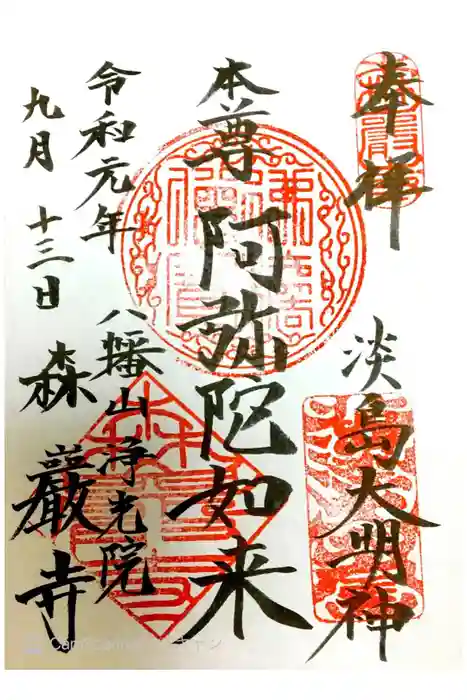 奉拝
淡島大明神
本尊 阿弥陀如来
八幡山 浄光院
森巌寺
令和元年
九月十三日